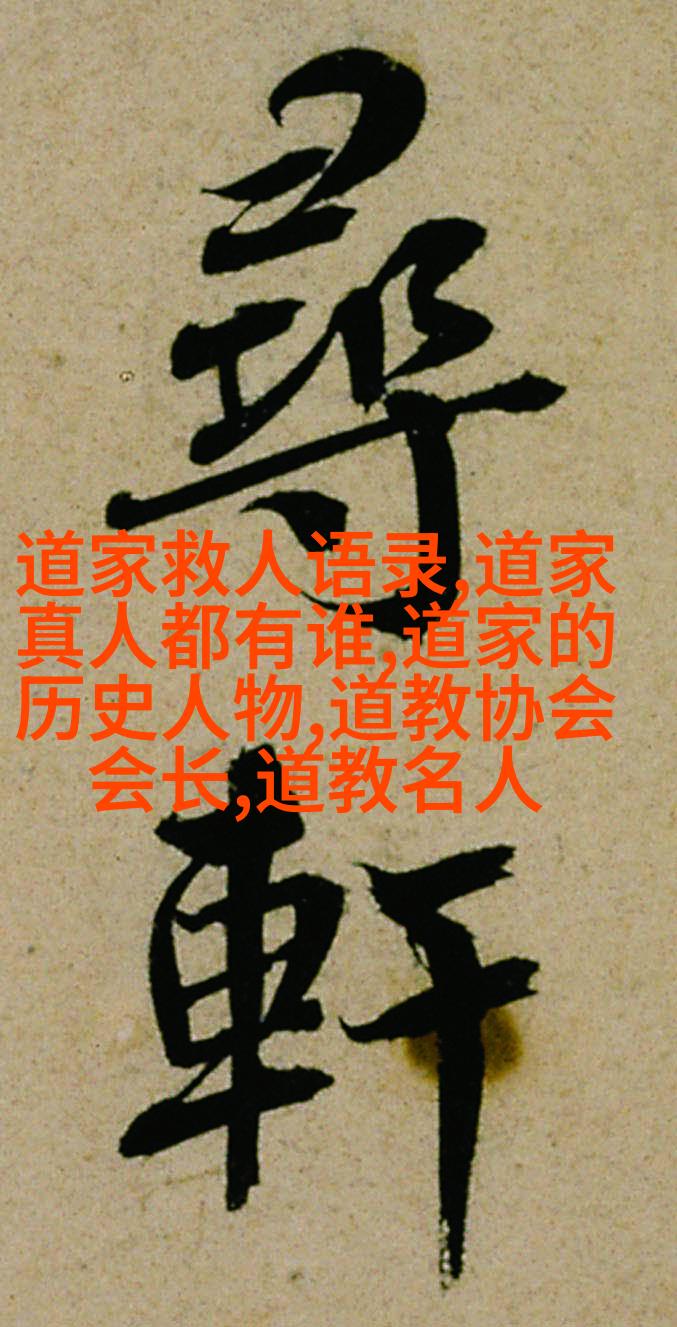 尋
軒
道家救人语录,道家
真人都有谁,道家的
历史人物,道教协会
会长,道教名人